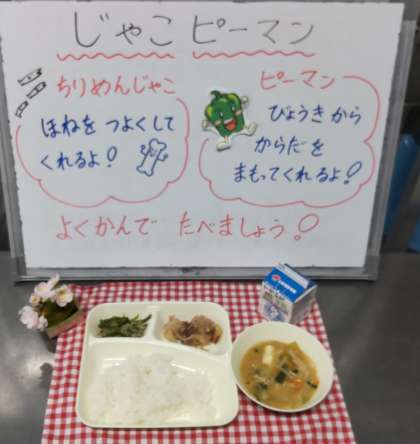 じゃこ ピーマン
ちりめんじゃこ
ほねを つよくして
くれるよ！
ピーマン
びょうきから
からだを
まもってくれるよ！
よくかんで たべましょう！